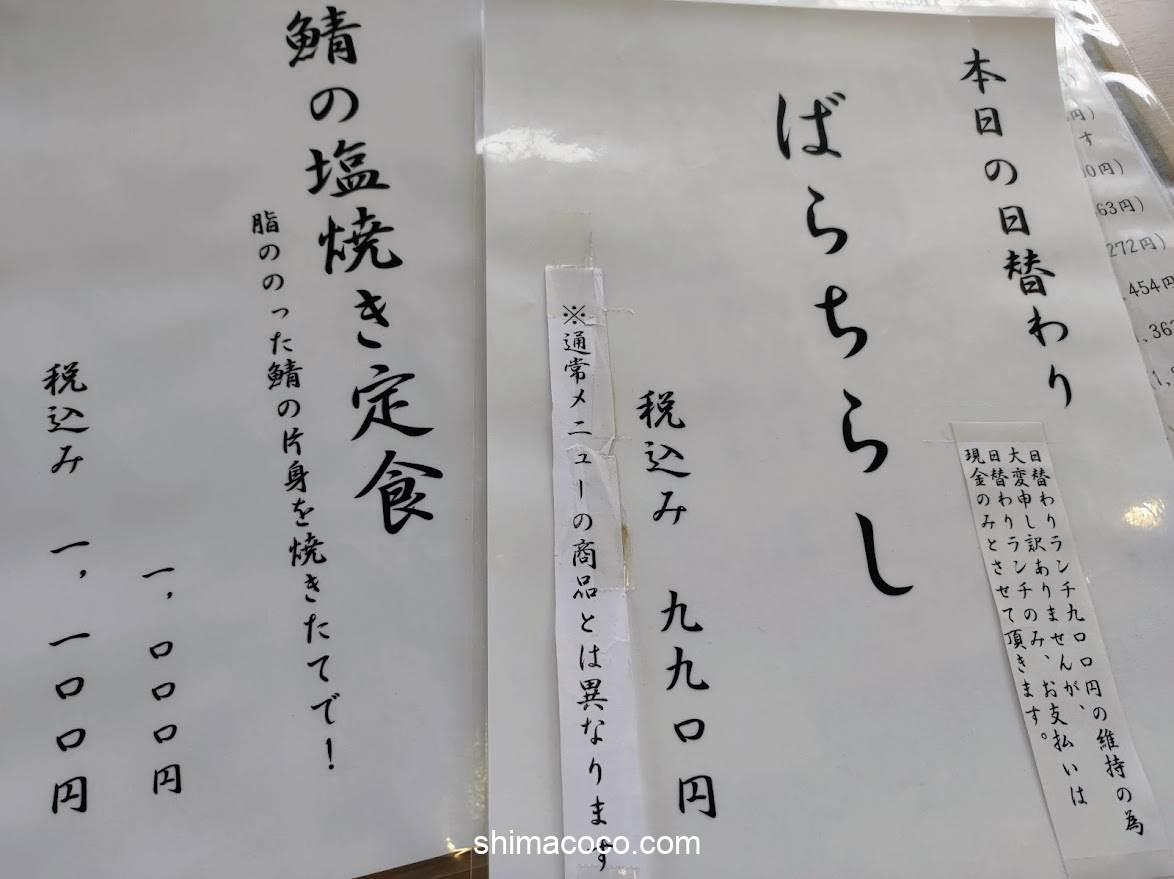 本日の日替わり
日替わりランチ九〇〇円の維持の為
大変申し訳ありませんが、
日替わりランチのみ、お支払いは
現金のみとさせて頂きます。
ばらちらし
税込み 九九〇円
※通常メニューの商品とは異なります
鯖の塩焼き定食
脂ののった鯖の片身を焼きたてで！
一,〇〇〇円
税込み 一,一〇〇円
円)
す
00円)
63円)
272円)
,454円
shimacoco.com